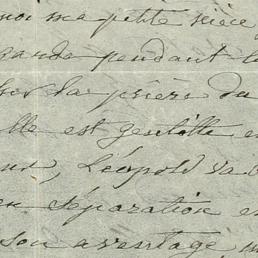 moi ma petite nièce
garde pendant l
la prière du
lle est gentille e
Léopold va
en séparation e
son avantage